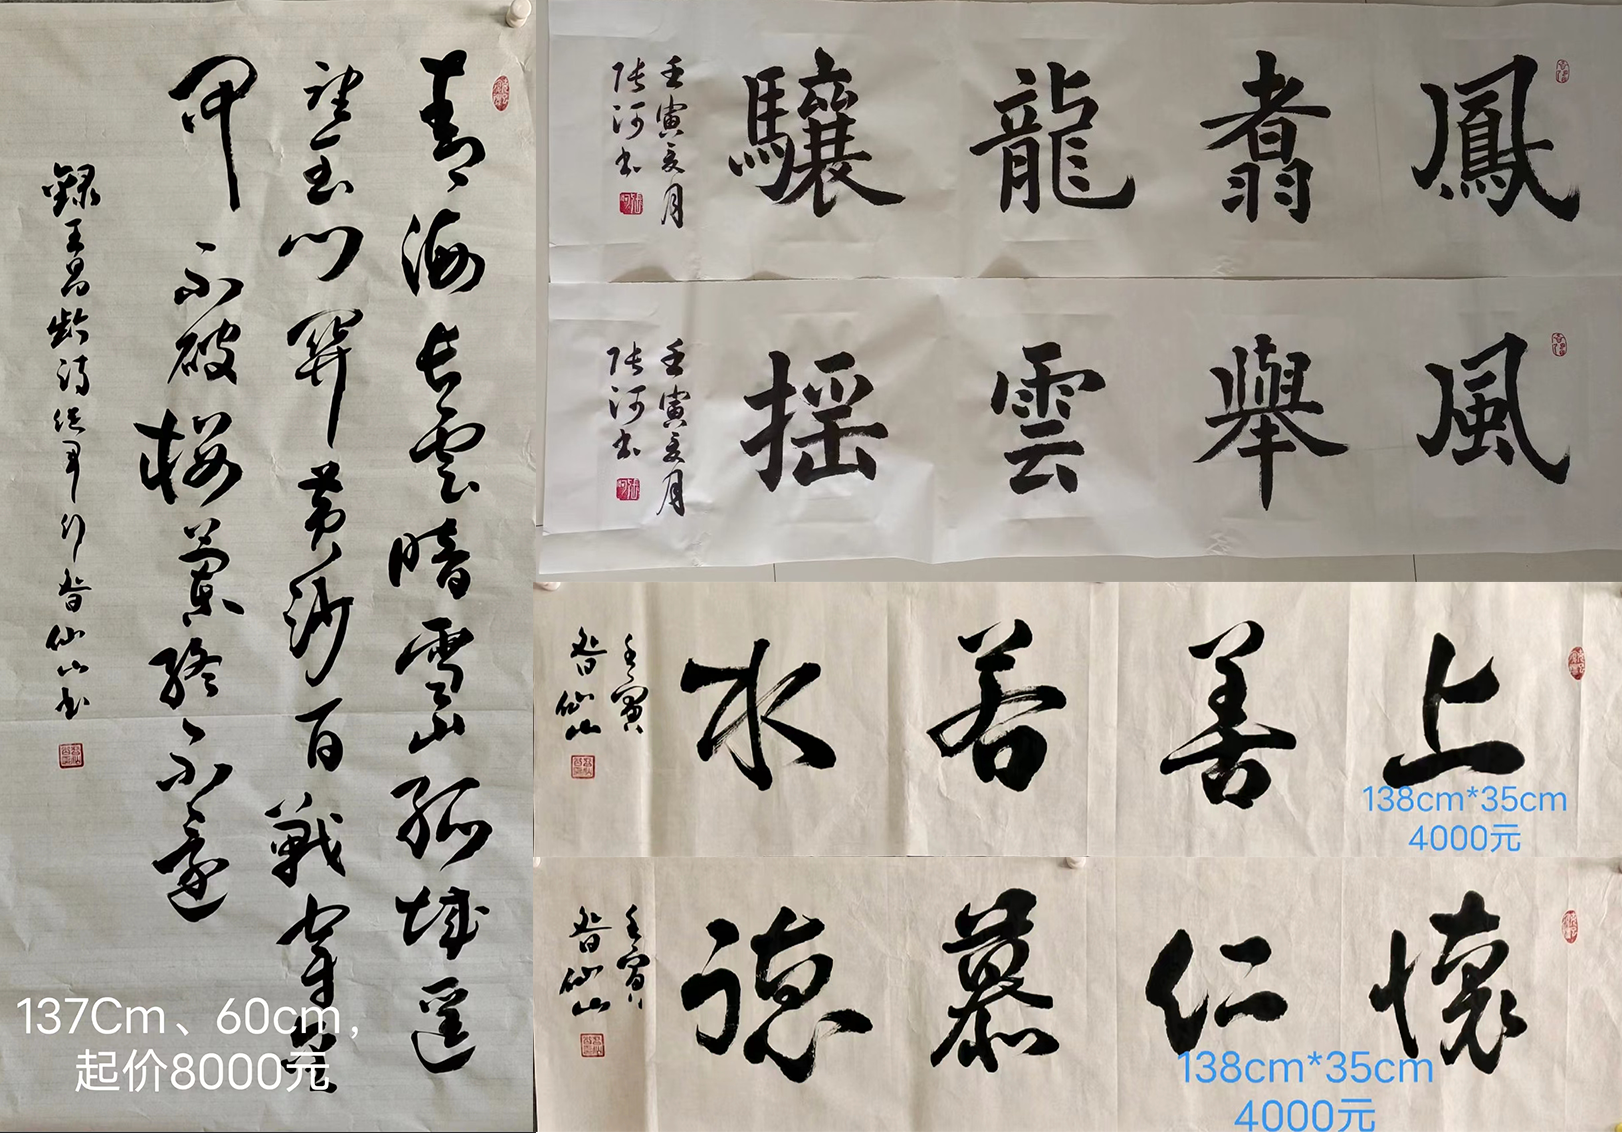 青海长雲暗雪山孤城遥
望玉门關黄沙百戰穿金
甲不破楼蘭終不還
録王昌龄诗從军行 昝仙山书
137Cm、60cm，
起价8000元
鳳翥龍驤
壬寅亥月
张河书
風舉雲摇
壬寅亥月
张河书
上善若水
壬寅
昝仙山
138cm*35cm
4000元
懷仁慕德
壬寅
昝仙山
138cm*35cm
4000元